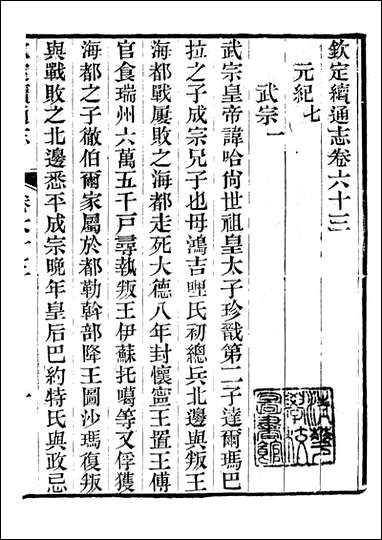 欽定續通志卷六十三
元紀七
武宗一
武宗皇帝諱哈尙世祖皇太子珍戩第二子達爾瑪巴
拉之子成宗兄子也母鴻吉哩氏初總兵北邊與叛王
海都戰屢敗之海都走死大德八年封懷寧王置王傅
官食瑞州六萬五千戸尋執叛王伊蘇托噶等又俘獲
海都之子徹伯爾家屬於都勒斡部降王圖沙瑪復叛
與戰敗之北邊悉平成宗晚年皇后巴約特氏與政忌